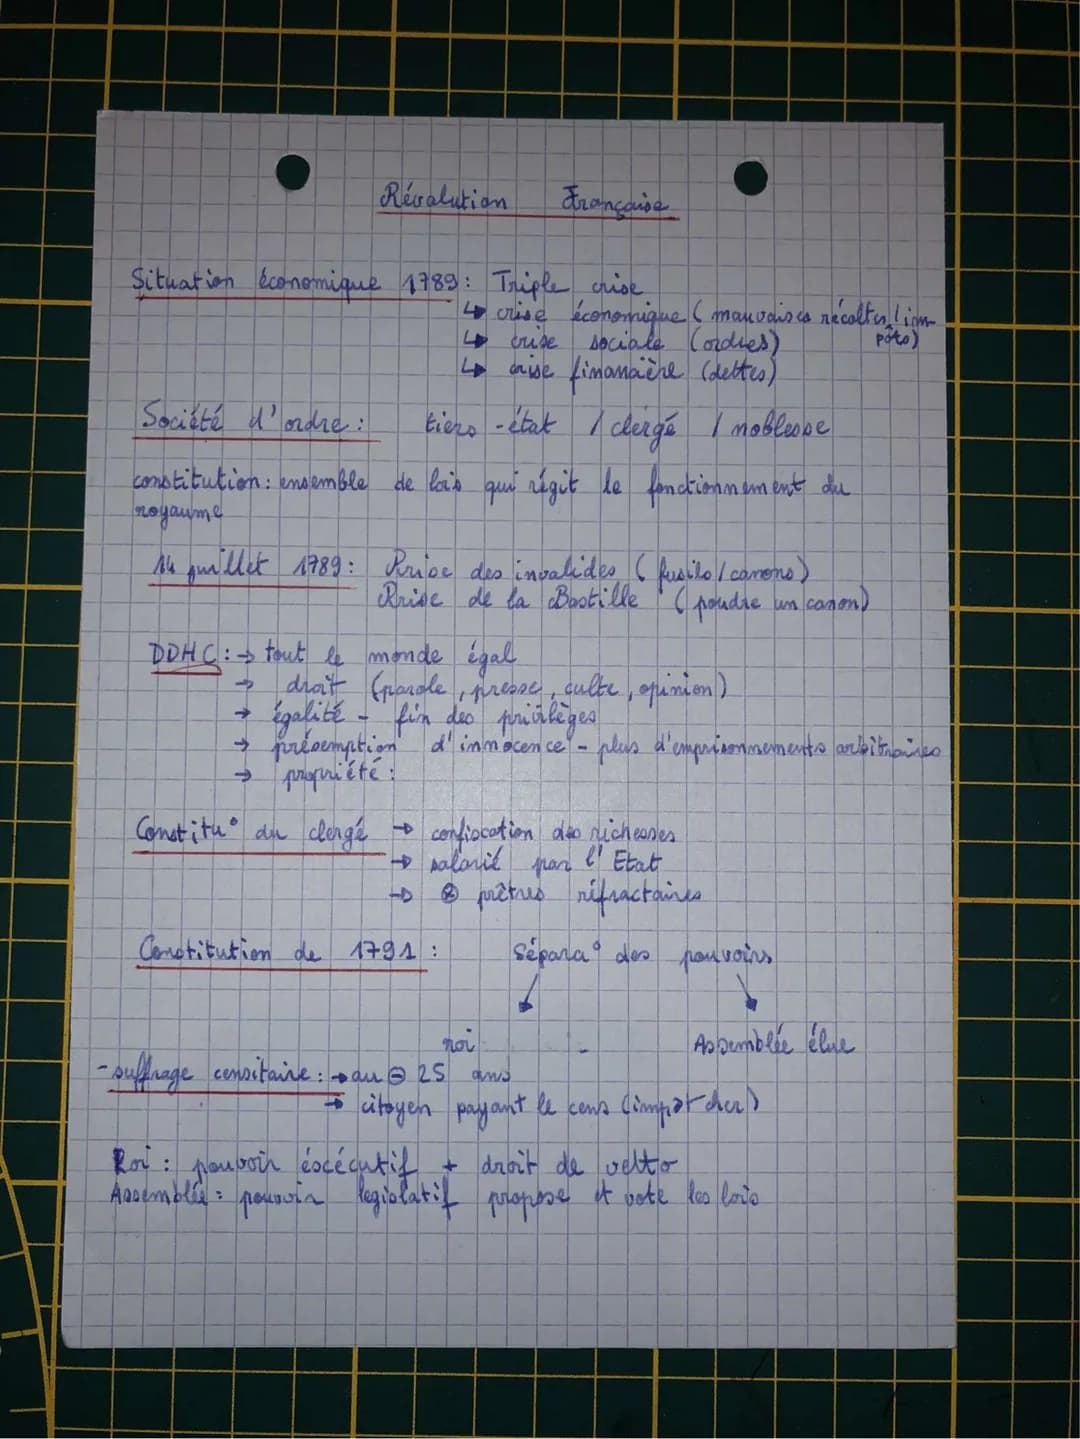 Révolution Française
Situation économique 1789 : Triple crise
↳ crise économique ( mauvaises récoltes / im-
pôts)
↳ crise sociale (ordres)
↳ crise financière (dettes)
Société d'ordre : tiers-état / clergé / noblesse
constitution : ensemble de lois qui régit le fonctionnement du
royaume
14 juillet 1789 : Prise des invalides ( fusils / canons )
Prise de la Bastille ( poudre un canon)
DDHC : → tout le monde égal
→ droit (parole, presse, culte, opinion)
→ égalité - fin des privilèges
→ présemption d'innocence - plus d'emprisonnements arbitraires
→ propriété :
Constitu° du clergé → confiscation des richesses
→ salarié par l'Etat
→ ⊗ prêtres réfractaires
Constitution de 1791 : Sépara° des pouvoirs
roi Assemblée élue
- suffrage censitaire : → au ⊖ 25 ans
→ citoyen payant le cens (impôt cher)
Roi : pouvoir éxécutif + droit de vetto
Assemblée : pouvoir legislatif propose et vote les lois